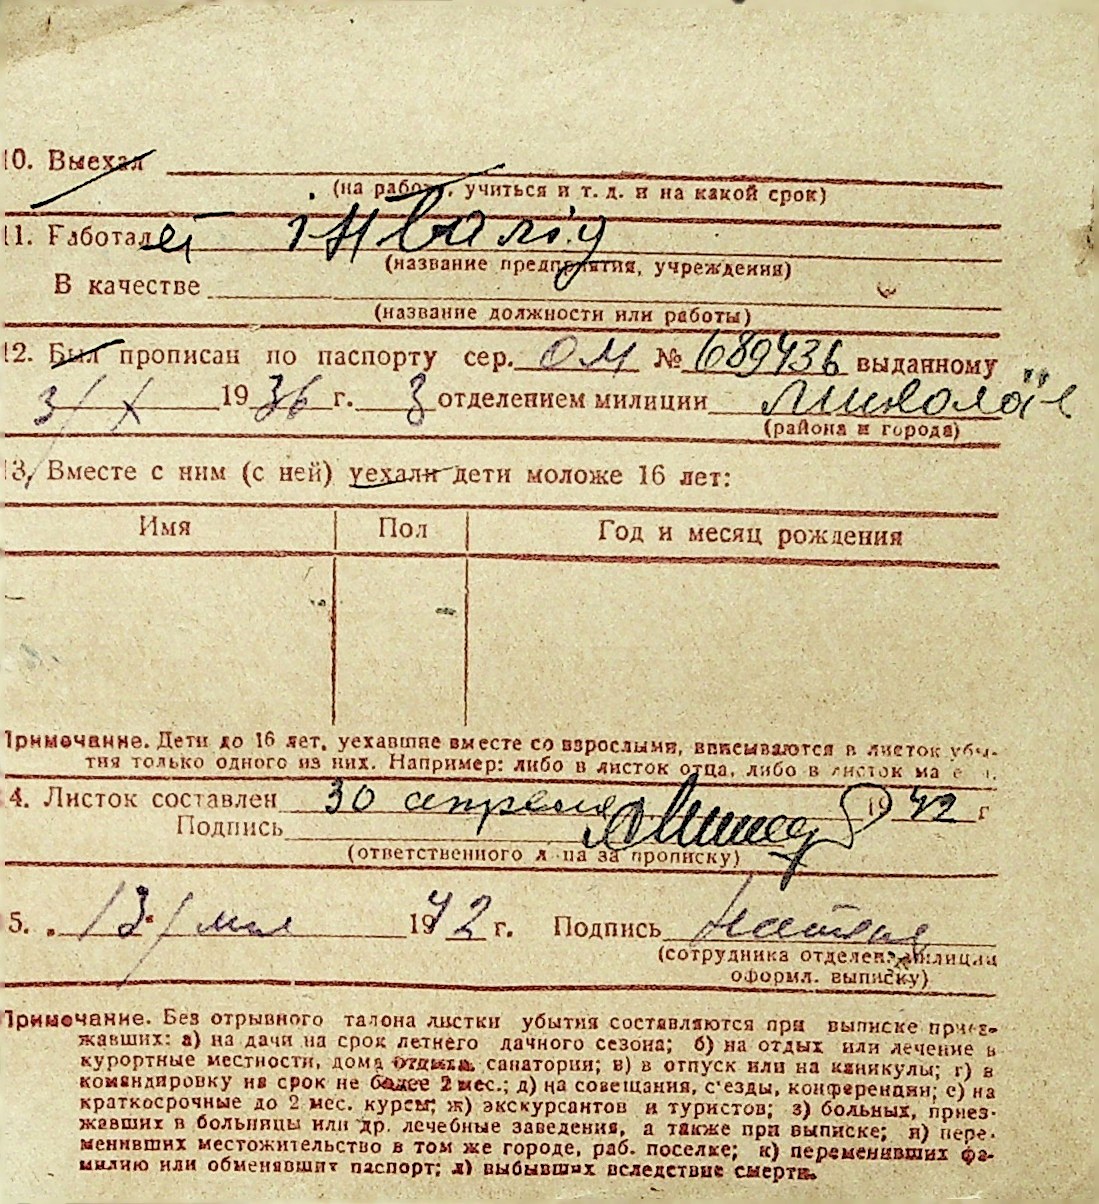 10. Выехал
(на работу, учиться и т. д. и на какой срок)
11. Работает інвалід
(название предприятия, учреждения)
В качестве
(название должности или работы)
12. Был прописан по паспорту сер. ОМ № 689436 выданному
3/X 1936 г. 3 отделением милиции Миколаїв
(района и города)
13. Вместе с ним (с ней) уехали дети моложе 16 лет:
Имя Пол Год и месяц рождения
Примечание. Дети до 16 лет, уехавшие вместе со взрослыми, вписываются в листок убы-
тия только одного из них. Например: либо в листок отца, либо в листок ма е и.
4. Листок составлен 30 апреля 1942 г
Подпись
(ответственного лица за прописку)
5. 13/ мая 1942 г. Подпись
(сотрудника отделен. милиции
оформ. выписку)
Примечание. Без отрывного талона листки убытия составляются при выписке приез-
жавших: а) на дачи на срок летнего дачного сезона; б) на отдых или лечение в
курортные местности, дома отдыха, санатории; в) в отпуск или на каникулы; г) в
командировку на срок не более 2 мес.; д) на совещания, с'езды, конференции; е) на
краткосрочные до 2 мес. курсы; ж) экскурсантов и туристов; з) больных, приез-
жавших в больницы или др. лечебные заведения, а также при выписке; и) пере-
менивших местожительство в том же городе, раб. поселке; к) переменивших фа-
милию или обменявших паспорт; л) выбывших вследствие смерти.